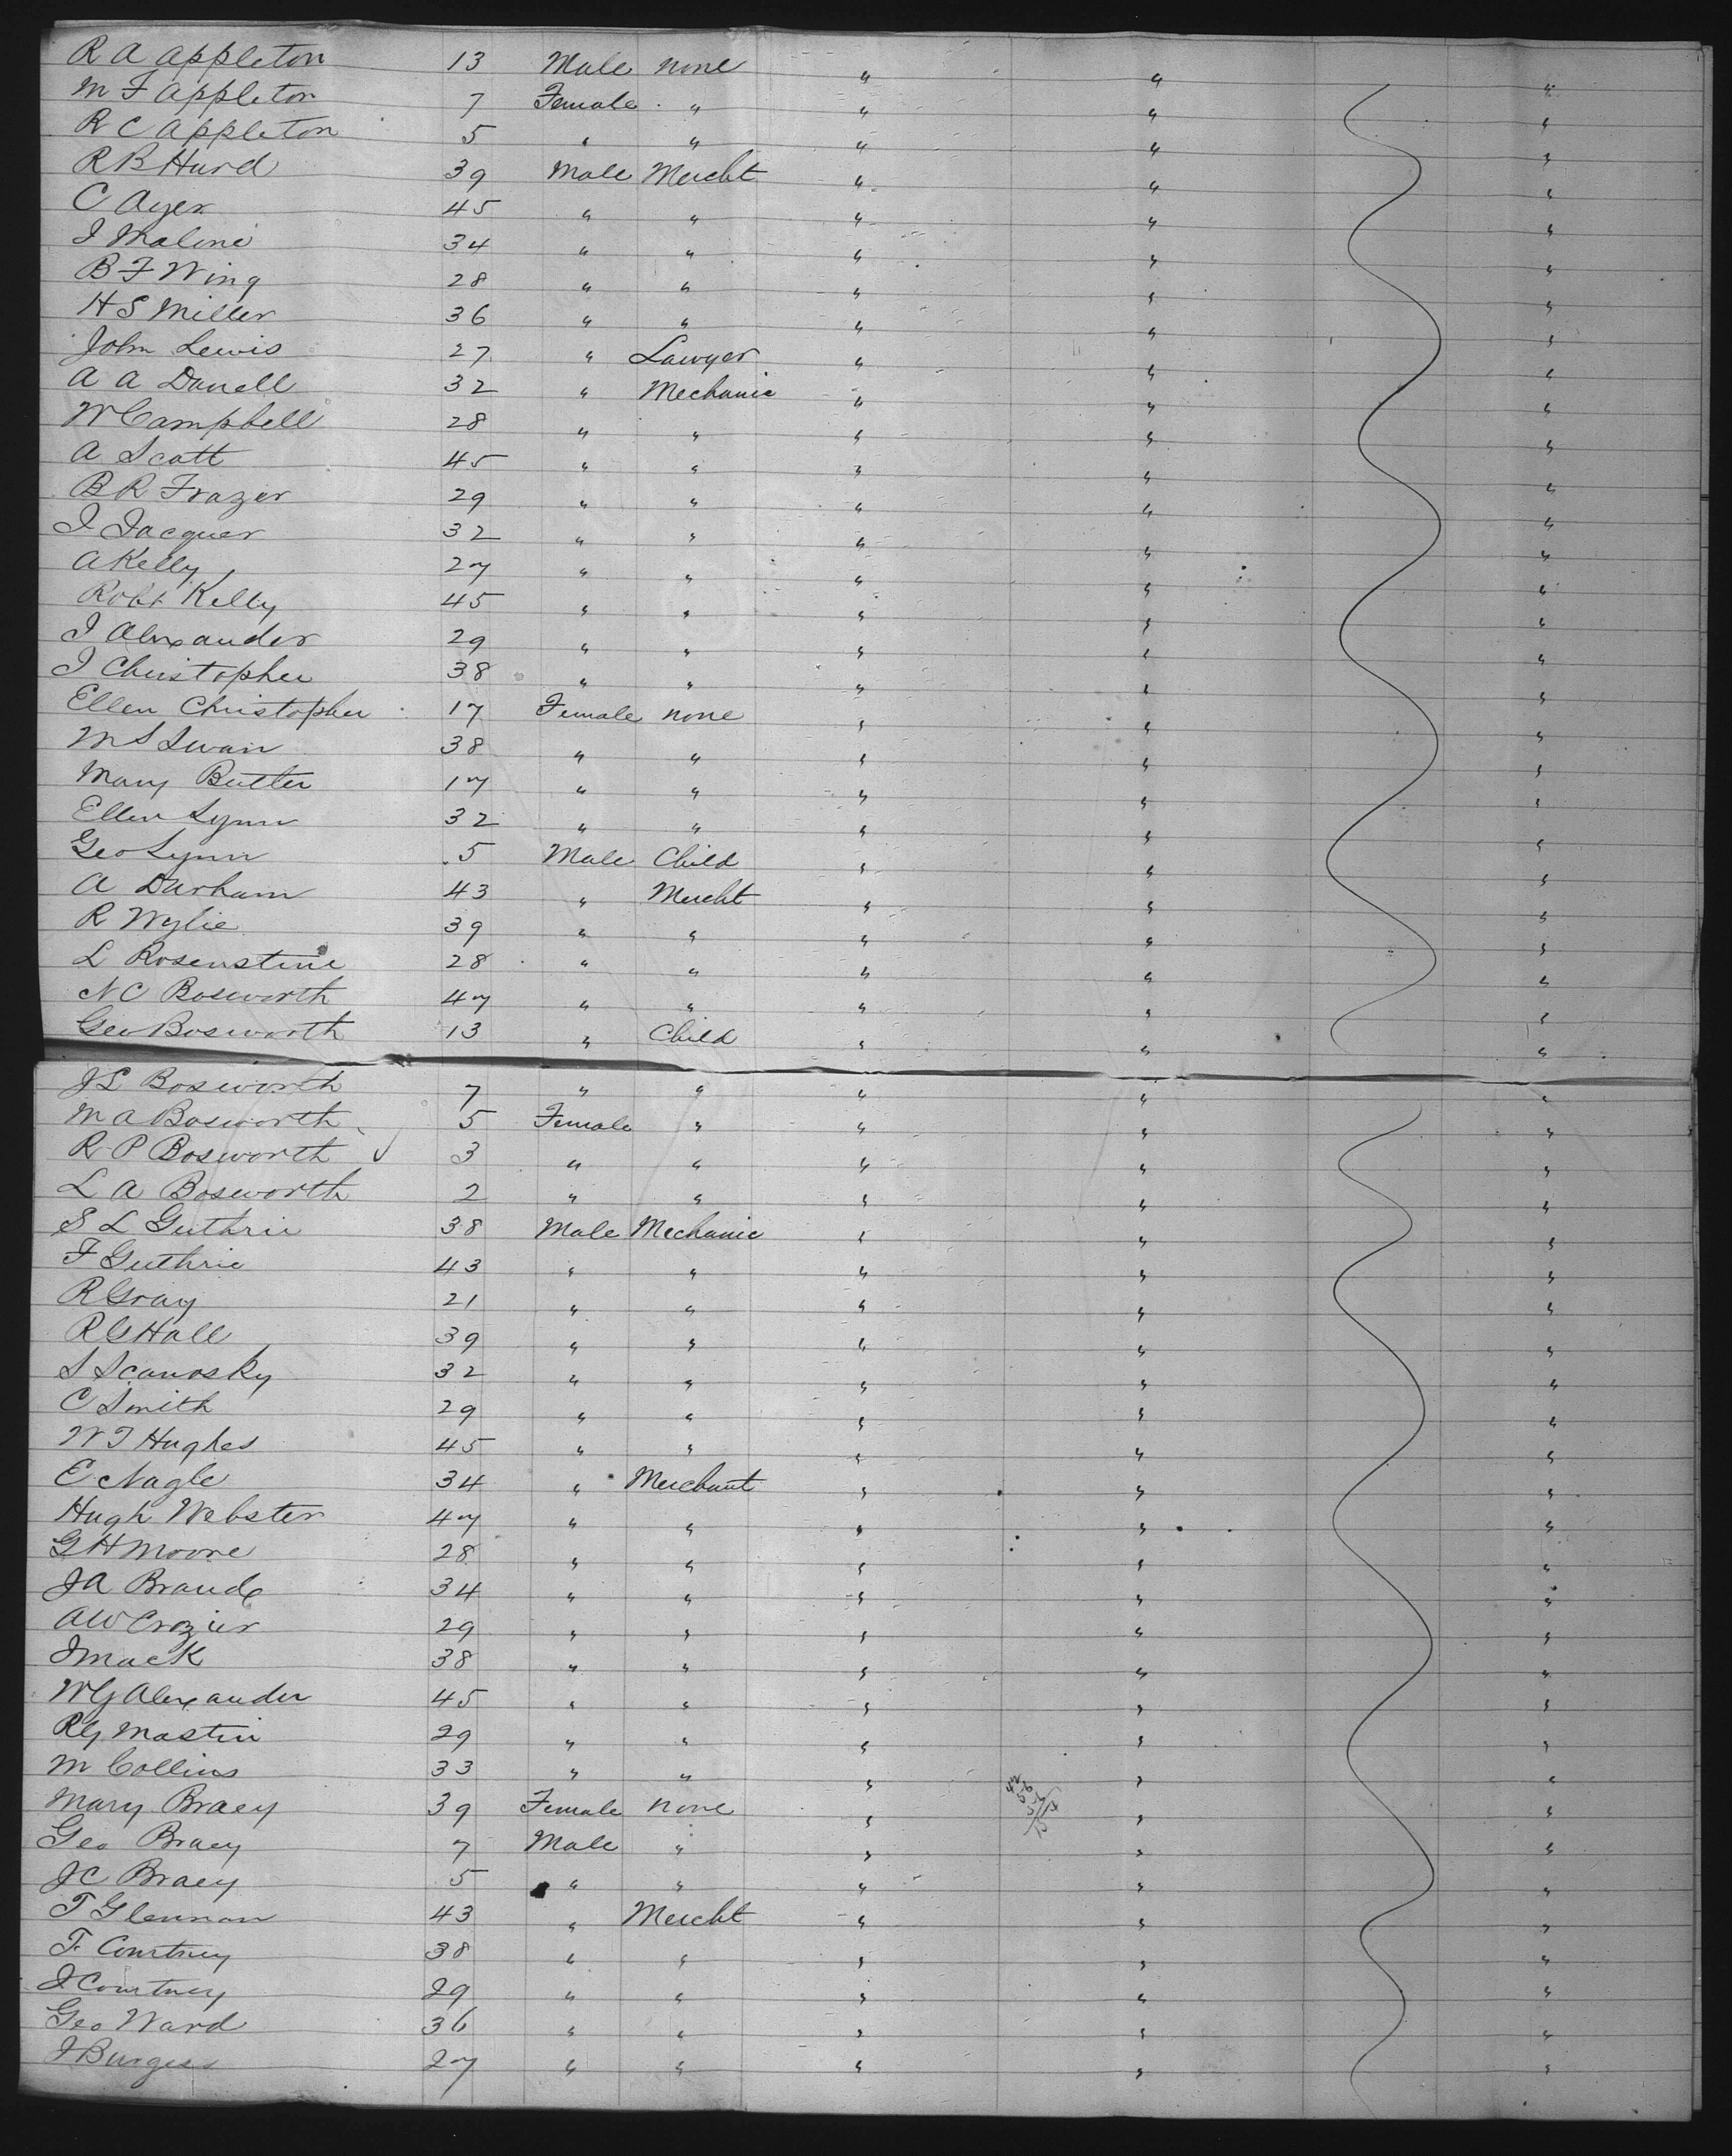 R A Appleton 13 Male none " " "
M F Appleton 7 Female " " " "
R C Appleton 5 " " " " "
R B Hurd 39 Male Mercht " " "
C Ayer 45 " " " " "
I Malone 34 " " " " "
B F Wing 28 " " " " "
H S Miller 36 " " " " "
John Lewis 27 " Lawyer " " "
A A Danell 32 " Mechanic " " "
W Campbell 28 " " " " "
A Scott 45 " " " " "
B R Frazer 29 " " " " "
J Jacquer 32 " " " " "
A Kelly 27 " " " " "
Robt Kelly 45 " " " " "
J Alexander 29 " " " " "
J Christopher 38 " " " " "
Ellen Christopher 17 Female none " " "
M S Swan 38 " " " " "
Mary Butler 17 " " " " "
Ellen Lynn 32 " " " " "
Geo Lynn 5 Male Child " " "
A Durham 43 " Mercht " " "
R Wylie 39 " " " " "
L Rosenstine 28 " " " " "
N C Bosworth 47 " " " " "
Geo Bosworth 13 " Child " " "
J L Bosworth 7 " " " " "
M A Bosworth 5 Female " " " "
R P Bosworth 3 " " " " "
L A Bosworth 2 " " " " "
S L Guthrie 38 Male Mechanic " " "
F Guthrie 43 " " " " "
R Gray 21 " " " " "
R G Hall 39 " " " " "
S Scanosky 32 " " " " "
C Smith 29 " " " " "
W T Hughes 45 " " " " "
E Nagle 34 " Merchant " " "
Hugh Webster 47 " " " " "
G H Moore 28 " " " " "
J A Brande 34 " " " " "
A W Crozier 29 " " " " "
J Mack 38 " " " " "
W G Alexander 45 " " " " "
R G Mastin 29 " " " " "
M Collins 33 " " " " "
Mary Bracy 39 Female none " " "
Geo Bracy 7 Male " " " "
J C Bracy 5 " " " " "
T Glennon 43 " Mercht " " "
F Courtney 38 " " " " "
J Courtney 29 " " " " "
Geo Ward 36 " " " " "
J Burgess 27 " " " " "